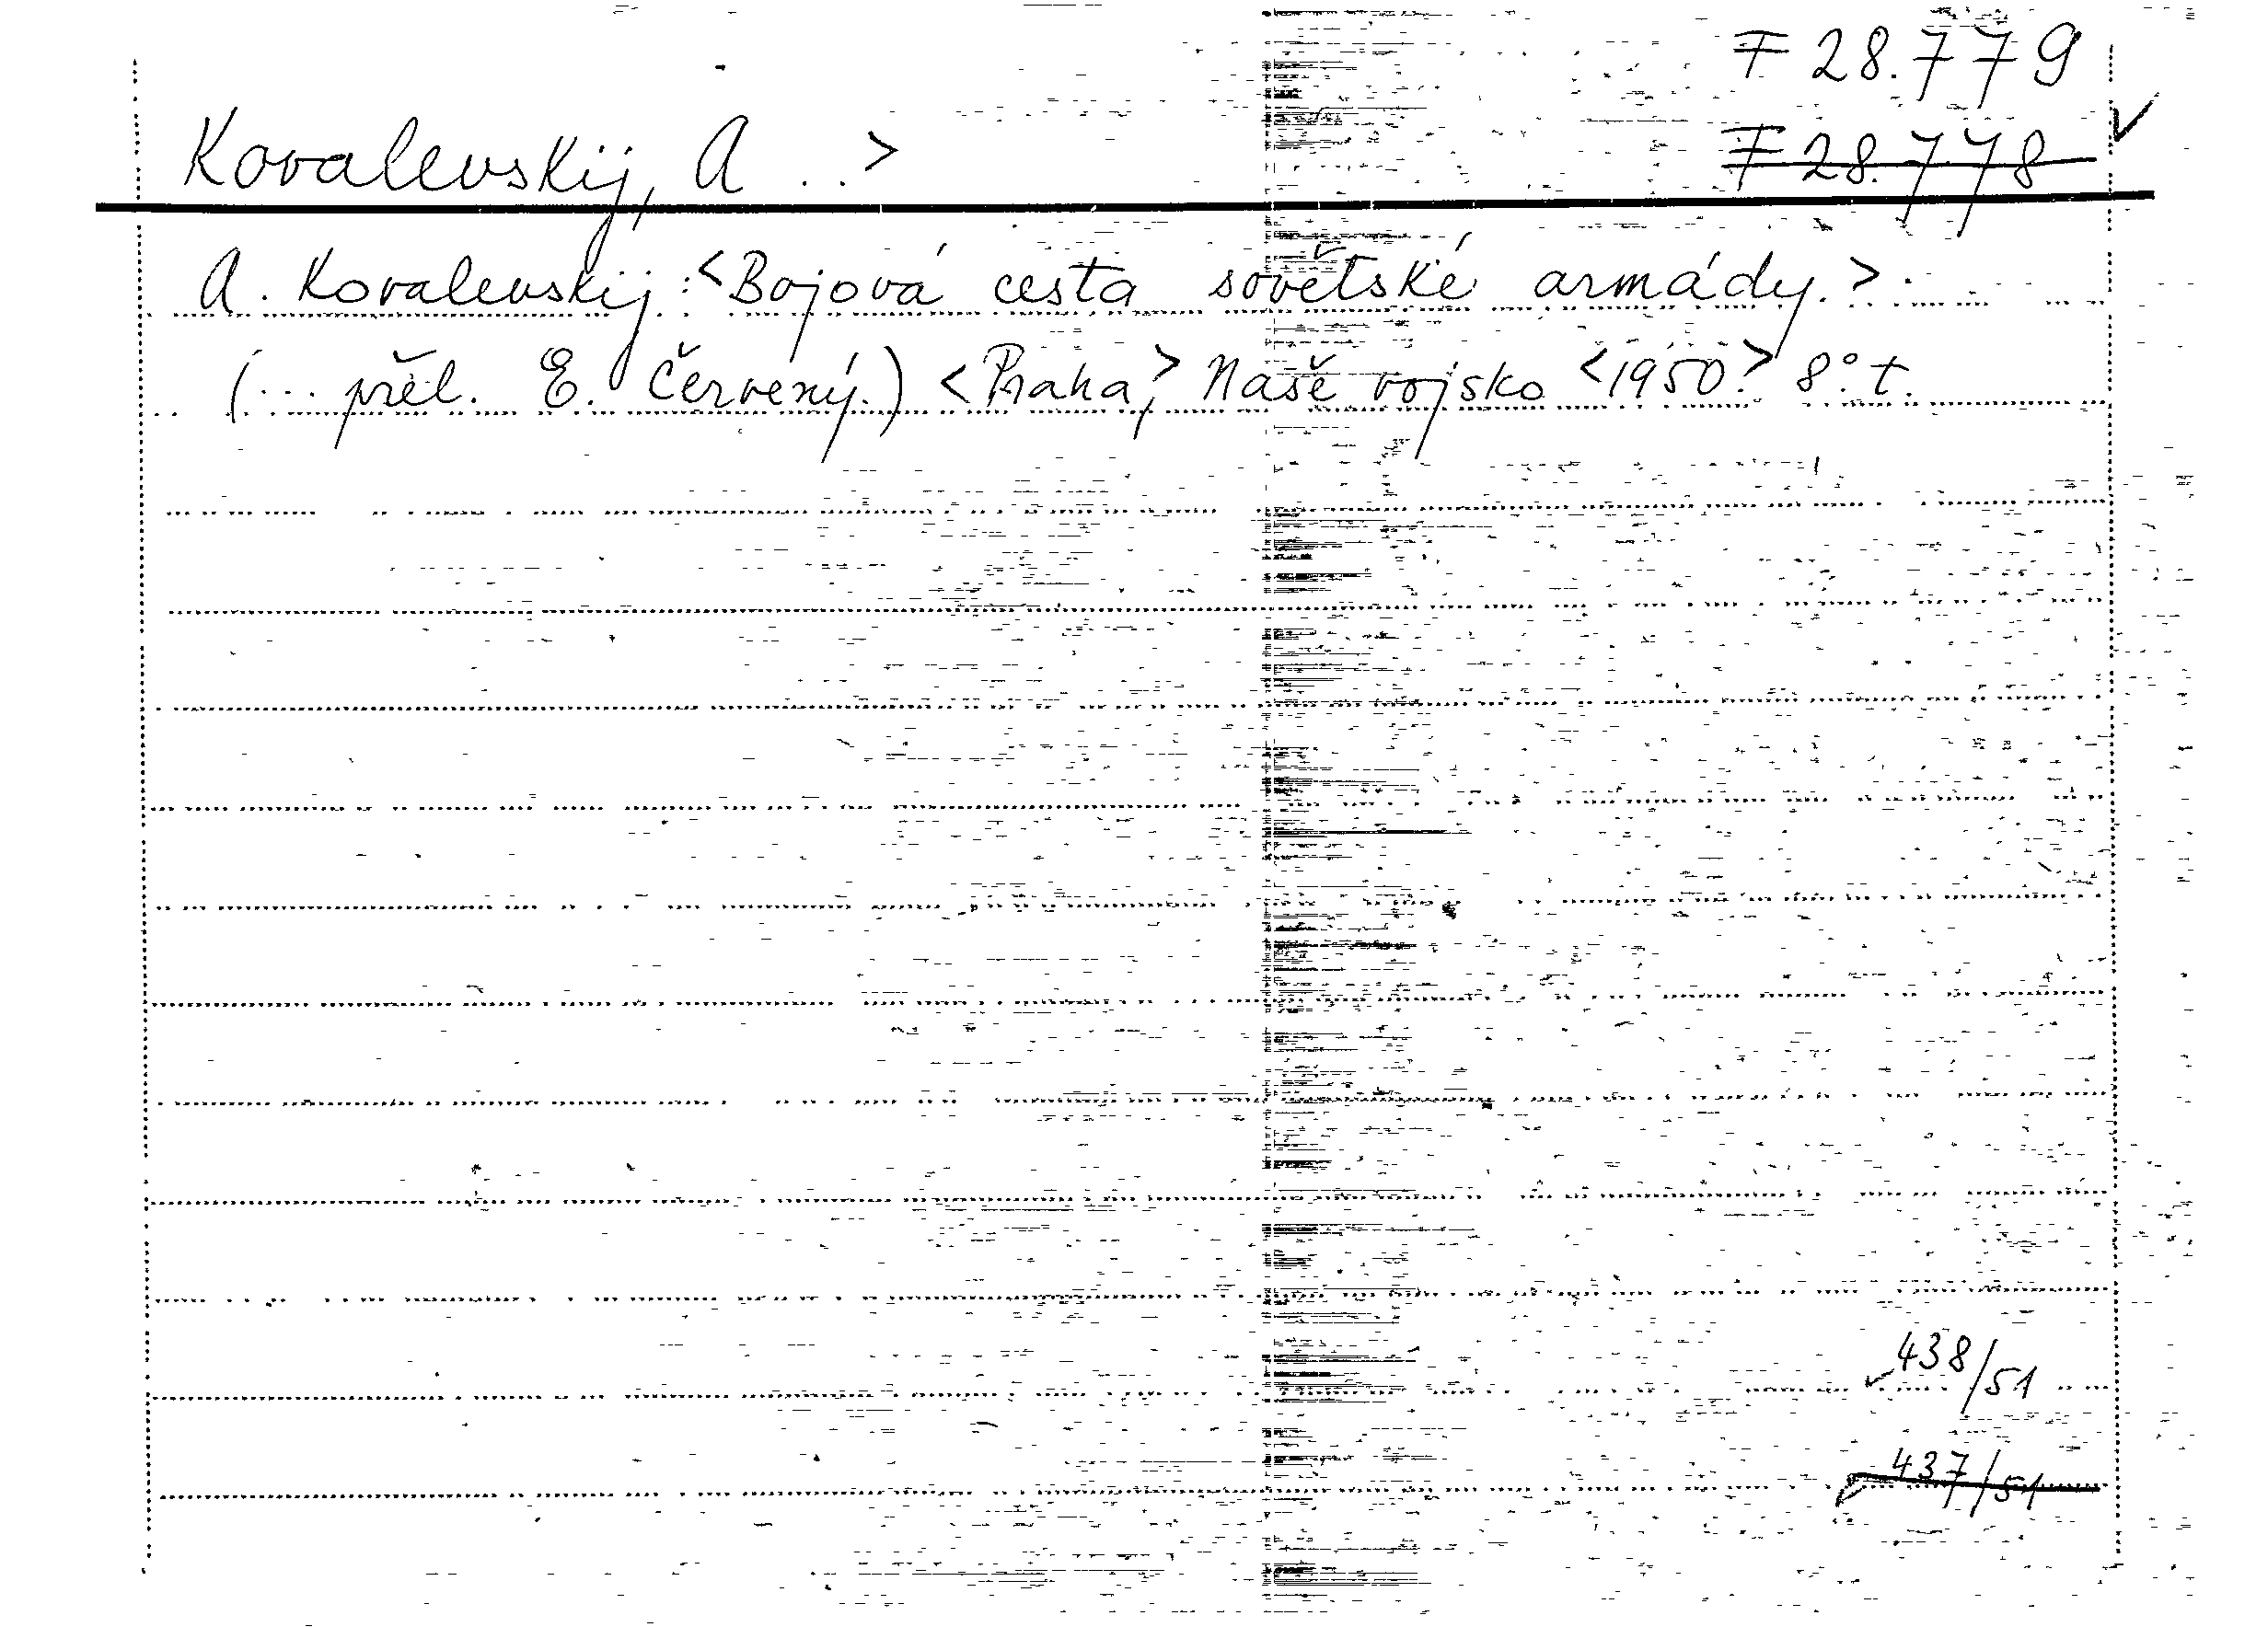 F 28.779
Kovalevskij, A ..> F 28.778
A. Kovalevskij: <Bojová cesta sovětské armády.>.
(... přel. E. Červený.) <Praha,> Naše vojsko <1950.> 8° t.
438/51
437/51